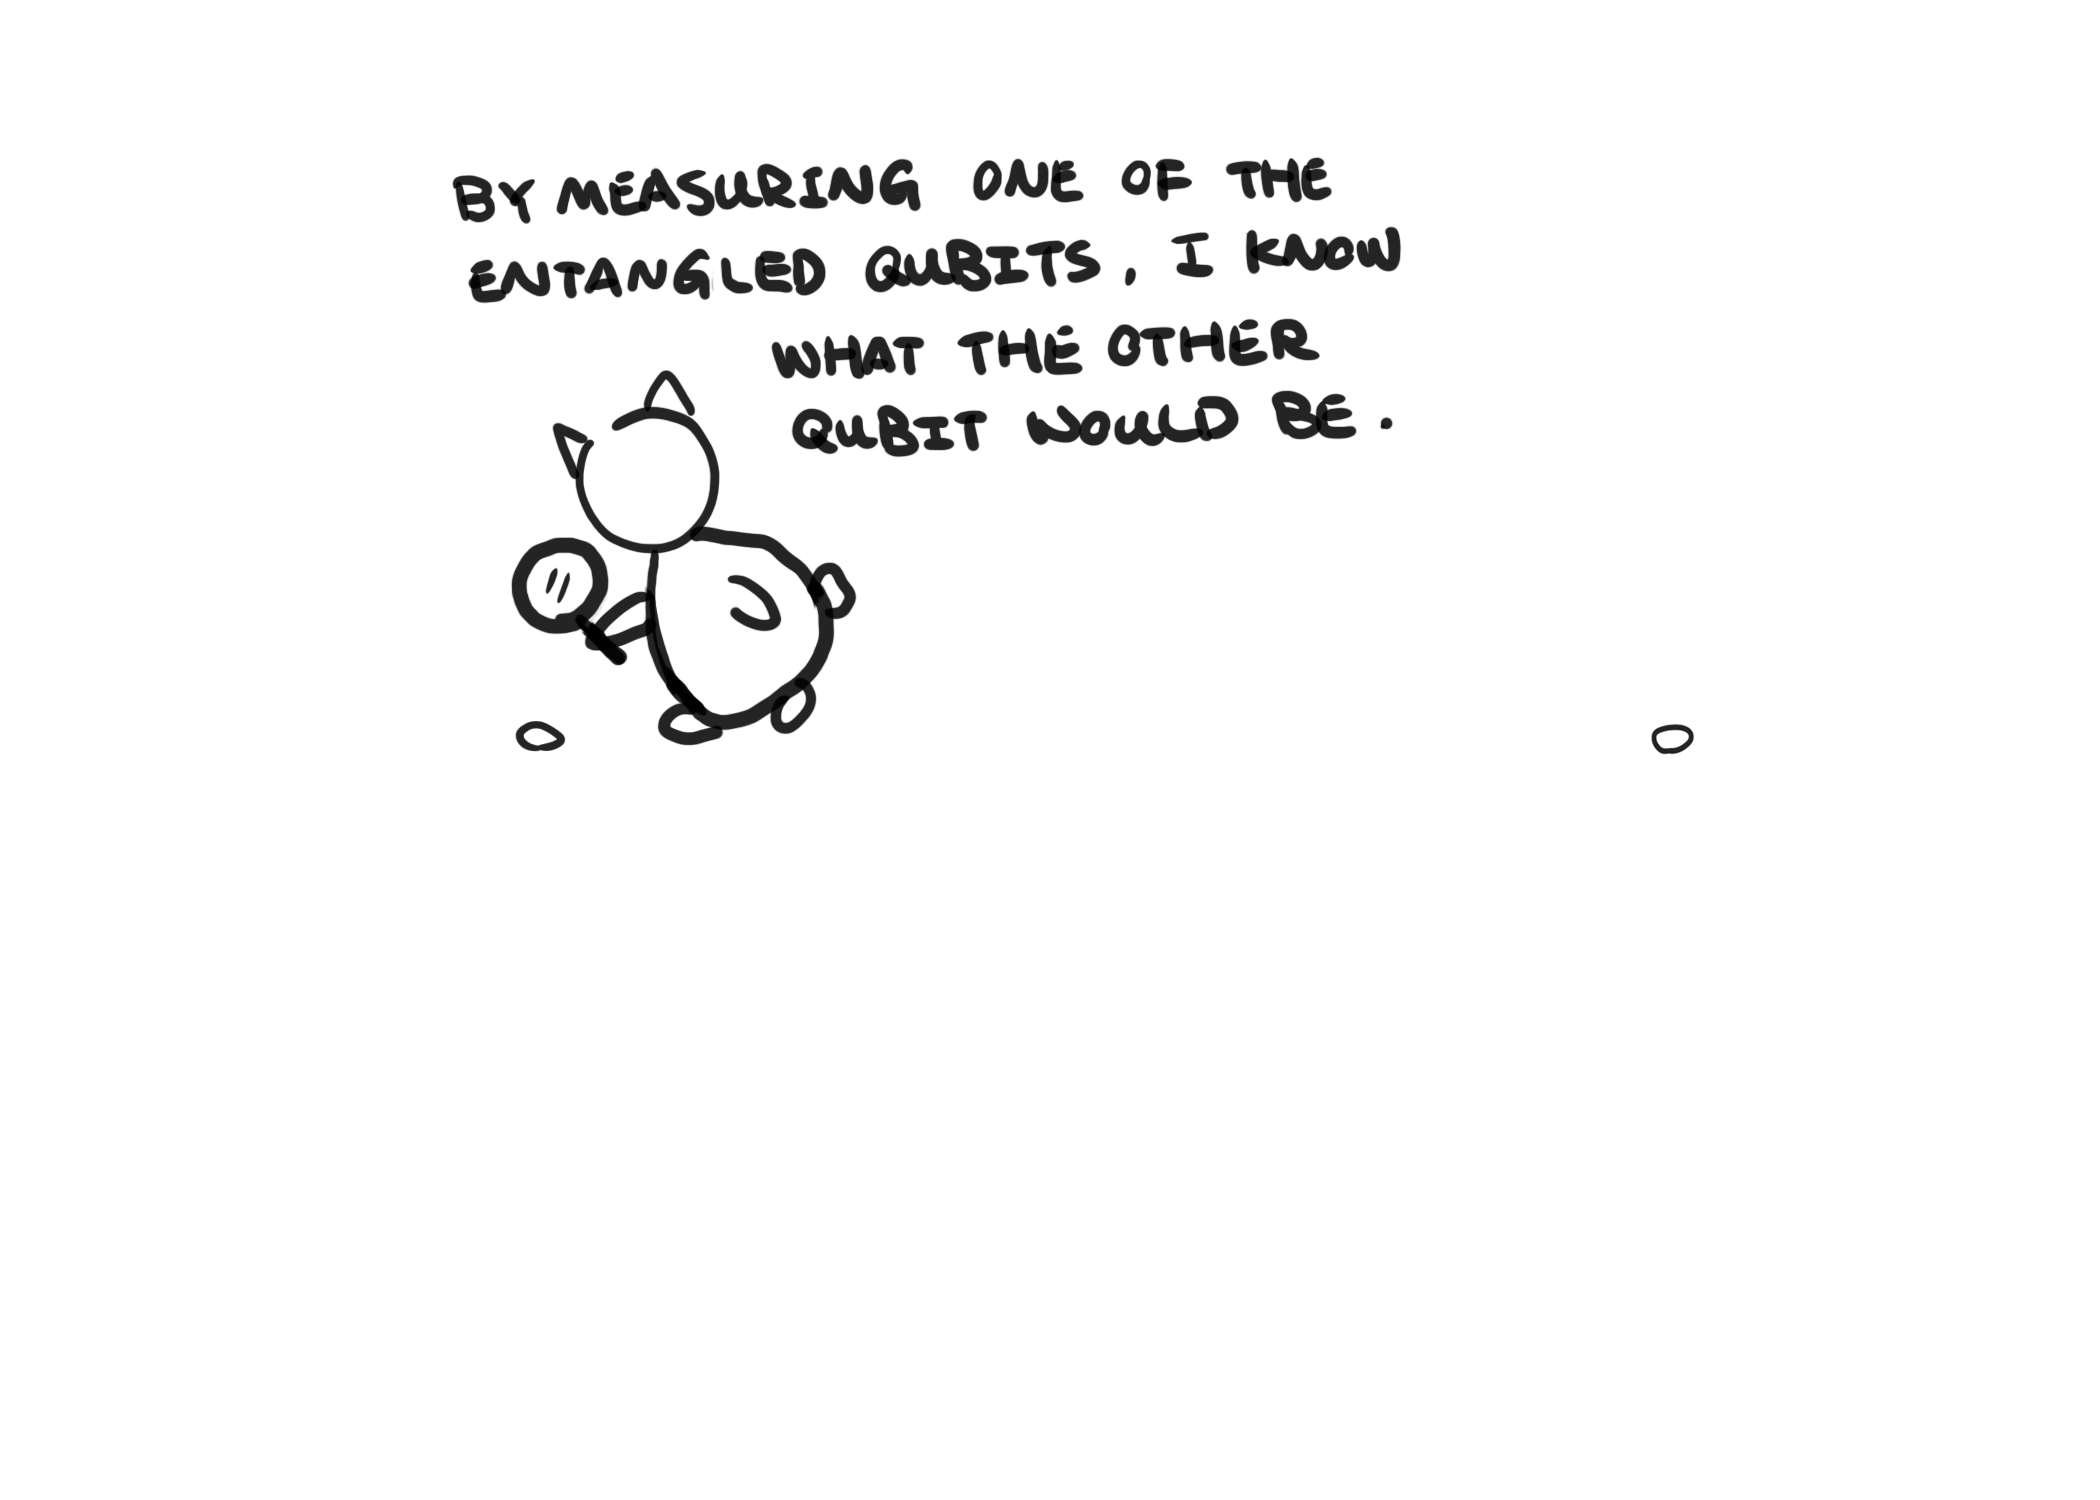 BY MEASURING ONE OF THE
ENTANGLED QUBITS, I KNOW
WHAT THE OTHER
QUBIT WOULD BE.